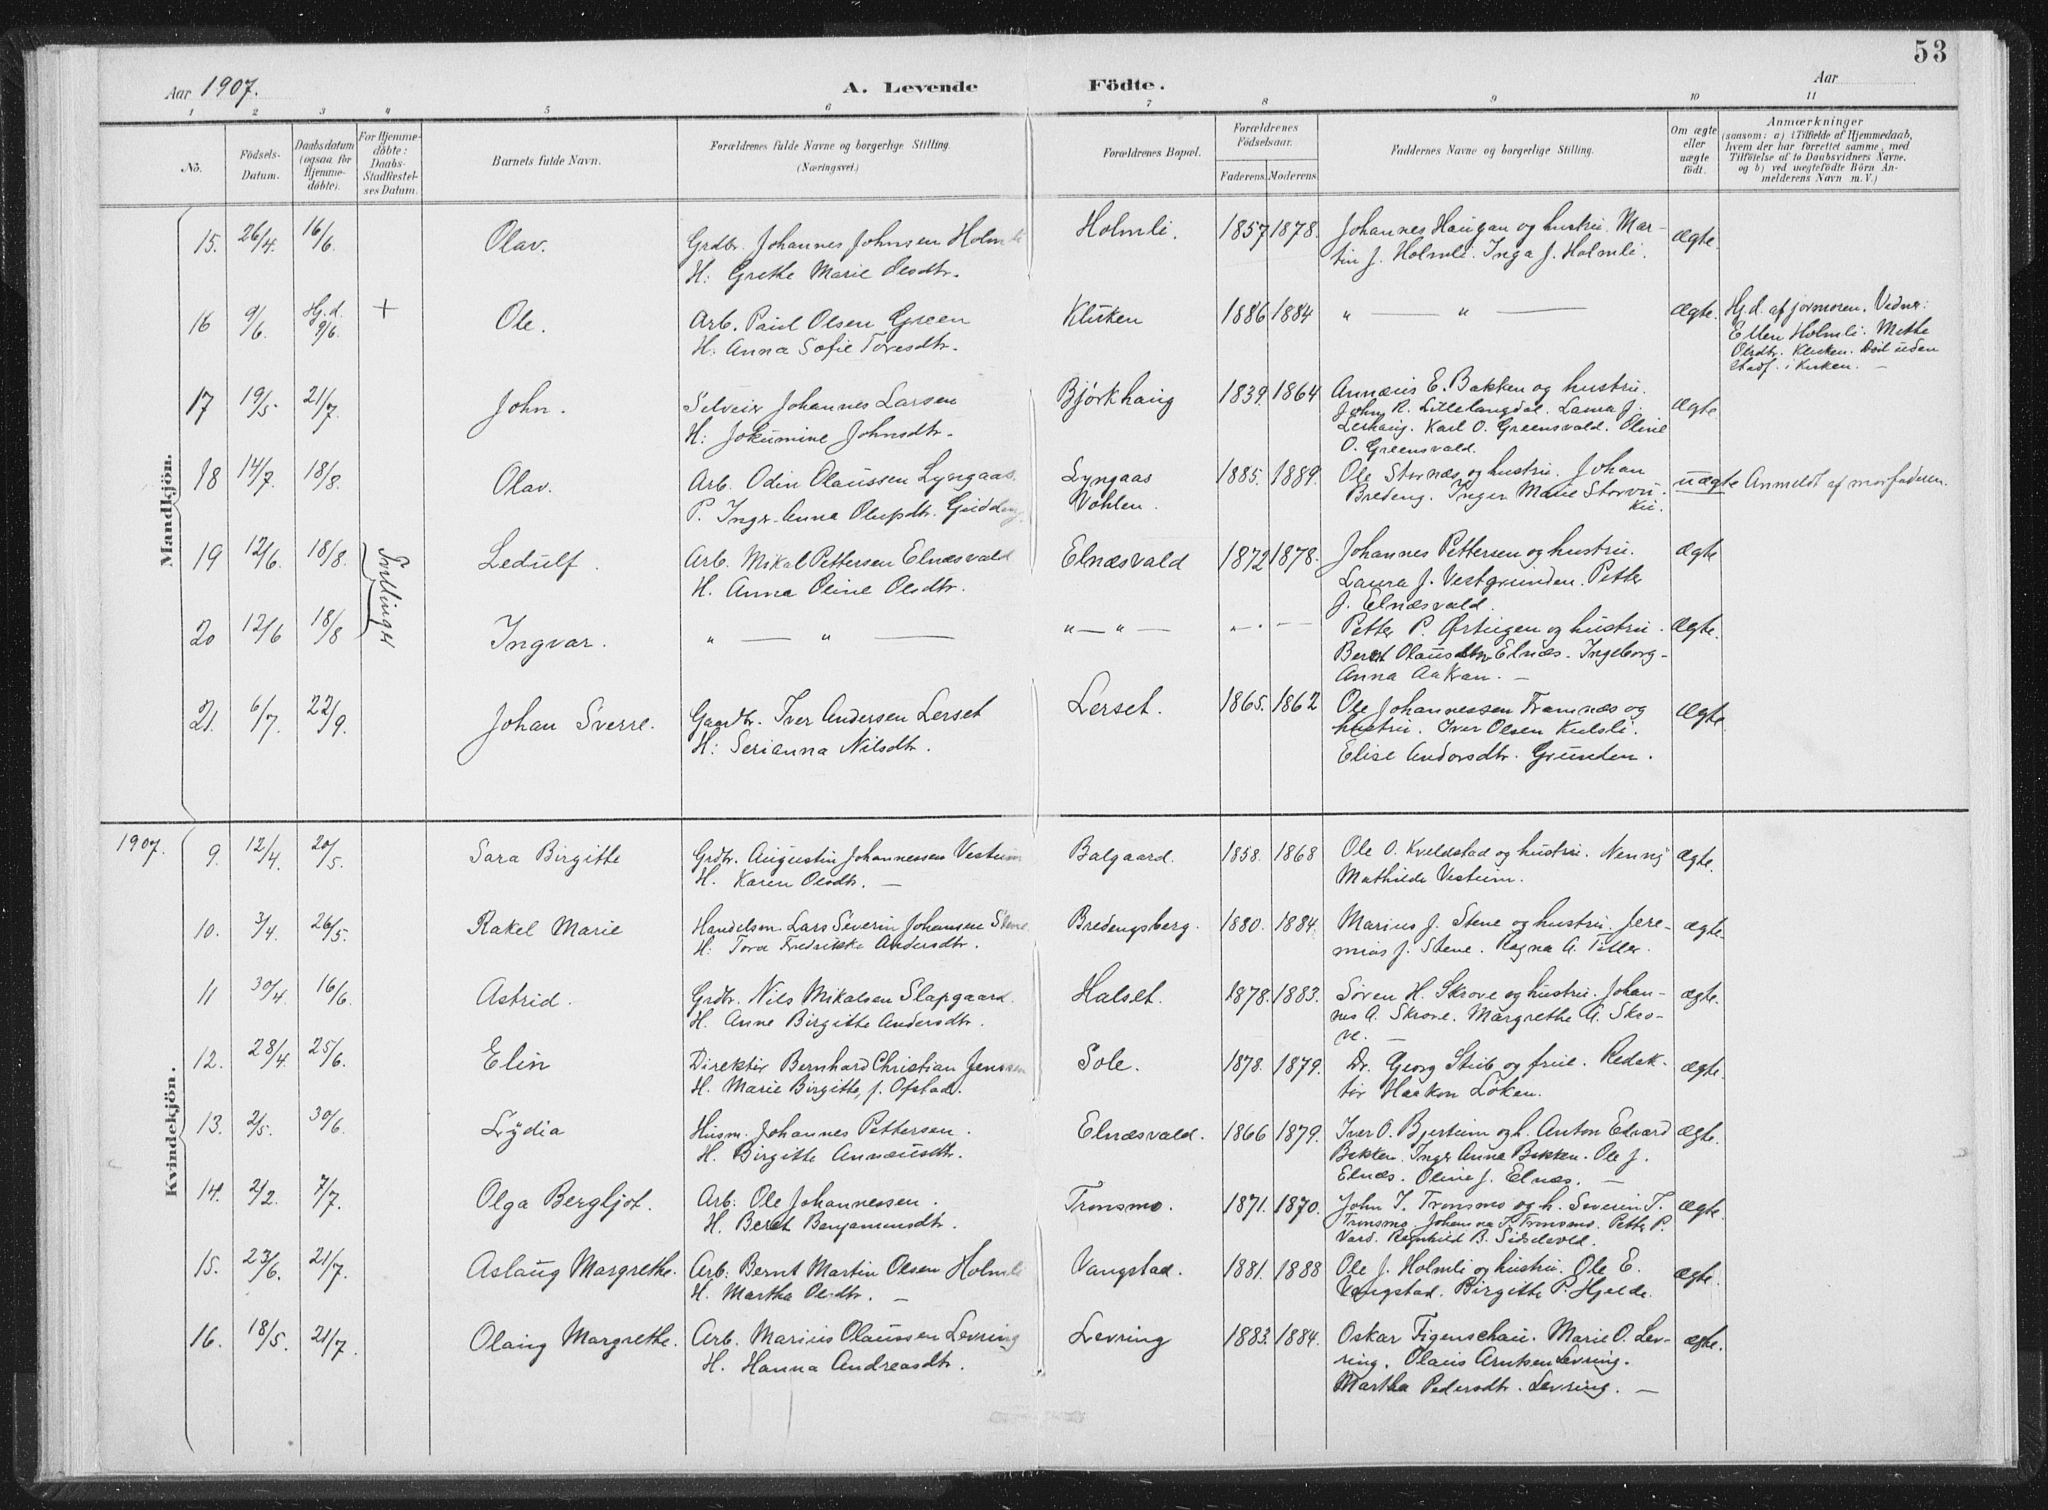 53
Aar 1907. A. Levende Födte. Aar
1 2 3 4 5 6 7 8 9 10 11
No. Födsels-Datum. Daabsdatum (ogsaa for Hjemmedöbte). For Hjemmedöbte: Daabs-Stadfæstelses Datum. Barnets fulde Navn. Forældrenes fulde Navne og borgerlige Stilling. (Næringsvei.) Forældrenes Bopæl. Forældrenes Födselsaar. Faderens. Moderens. Faddernes Navne og borgerlige Stilling. Om ægte eller uægte födt. Anmærkninger (saasom: a) i Tilfælde af Hjemmedaab, hvem der har forrettet samme, med Tilföielse af to Daabsvidners Navne, og b) ved uægtefödte Börn Anmelderens Navn m. V.)
Mandkjön.
15. 26/4. 16/6. Olav. Grdbr. Johannes Johnsen Holmli Holmli. 1857 1878. Johannes Haugan og hustru. Mar- ægte.
H. Grethe Marie Olsdtr. tin J. Holmli. Inga J. Holmli.
16 9/6 Hj.d. 9/6. + Ole. Arb. Paul Olsen Green Klüken 1886 1884 " — " — ægte. Hj.d. af jormoren. Vidner:
H. Anna Sofie Toresdtr. Ellen Holmli. Mette
Olsdtr. Klüken. Död uden
stadf. i Kirken. —
17 19/5 21/7. John. Selveier Johannes Larsen Björkhaug 1839. 1864 Annæus E. Bakken og hustru. ægte
H: Jokumine Johnsdtr. John R. Lillelangdal. Laura J.
Lerhaug. Karl O. Greensvald. Oline
O. Greensvald.
18 14/7. 18/8. Olav. Arb. Odin Olaussen Lyngaas Lyngaas 1885. 1889. Ole Stornæs og hustru. Johan uægte Anmeldt af morfaderen.
P. Ingr. Anna Olupsdtr. Gudding Vohlen. Bredeng. Inger Marie Storvu-
ku.
19 12/6. 18/8. Tvillinger Ledulf. Arb. Mikal Pettersen Elnæsvald Elnæsvald 1872 1878. Johannes Pettersen og hustru. ægte
H. Anna Oline Olsdtr. Laura J. Vestgrunden. Petter
J. Elnæsvald.
20 12/6 18/8 Ingvar. " — " — " — " — " — Petter P. Örtugen og hustru. ægte.
Beret Olausdtr Elnæs. Ingeborg-
Anna Aakran. —
21. 6/7. 22/9. Johan Sverre. Gaardbr. Iver Andersen Lerset Lerset. 1865. 1862 Ole Johannessen Framnæs og ægte
H: Serianna Nilsdtr. hustru. Iver Olsen Kulsli.
Elise Andorsdtr. Grunden.
1907.
Kvindekjön.
9. 12/4. 20/5. Sara Birgitte Grdbr. Augustin Johannessen Vestrum Balgaard. 1858. 1868 Ole O. Kveldstad og hustru. Nenny ægte.
H. Karen Olsdtr. — Mathilde Vestrum.
10. 3/4. 26/5. Rakel Marie Handelsm. Lars Severin Johansen Stene Bredengsberg. 1880. 1884. Marius J. Stene og hustru. Jere- ægte.
H. Tora Fredrikke Andersdtr. mias J. Stene. Ragna A. Tiller.
11 30/4. 16/6. Astrid. Grdbr. Nils Mikalsen Slapgaard. Halset. 1878. 1883. Søren H. Skrove og hustru. Johan- ægte.
H. Anne Birgitte Andersdtr. nes A. Skrove. Margrethe A. Skro-
ve. —
12. 28/4. 25/6. Elin Direktör Bernhard Christian Jenssen Sole. 1878. 1879. Dr. Georg Stub og frue. Redak- ægte.
H. Marie Birgitte, f. Ofstad. tör Haakon Löken.
13. 2/5. 30/6. Lydia Husm. Johannes Pettersen. Elnæsvald. 1866 1879. Iver O. Bjertum og h. Anton Edvard ægte.
H. Birgitte Annæusdtr. Bakken. Ingr. Anna Bakken. Ole J.
Elnæs. Oline J. Elnæs. —
14. 2/2. 7/7. Olga Bergljot. Arb. Ole Johannessen. Tronsmo. 1871. 1870. John T. Tronsmo og h. Severin T. ægte.
H. Beret Benjaminsdtr. Tronsmo. Johanna F. Tronsmo. Petter P.
Vard. Ragnhild B. Sidselvold.
15. 23/6. 21/7. Aslaug Margrethe. Arb. Bernt Martin Olsen Holmli Vangstad. 1881. 1888 Ole J. Holmli og hustru. Ole E. ægte.
H. Martha Olsdtr. — Vangstad. Birgitte P. Hjelde.
16. 18/5. 21/7. Olaug Margrethe. Arb. Marius Olaussen Levring Levring 1883. 1884. Oskar Figenschau. Marie O. Lev- ægte.
H. Hanna Andreasdtr. ring. Olaus Arntsen Levring.
Martha Pedersdtr. Levring. —